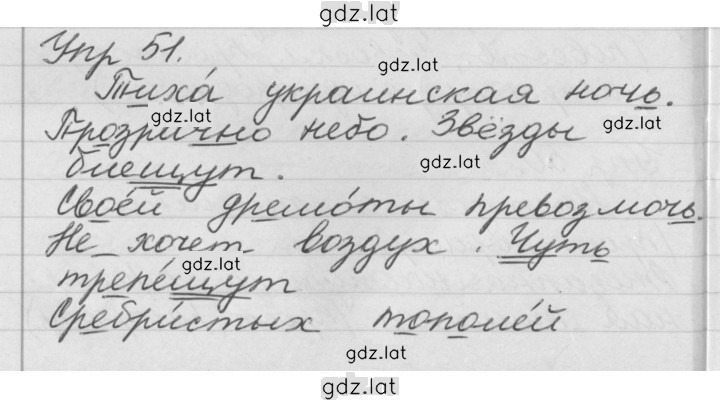 gdz.lat
Упр 51.
gdz.lat
Тиха́ украинская ночь.
gdz.lat
gdz.lat
Прозрично небо. Звёзды
gdz.lat
блещут.
Свое́й дремо́ты превозмочь.
Не хочет воздух. Чуть
gdz.lat
трепе́щут
Сребри́стых тополе́й
gdz.lat
gdz.lat